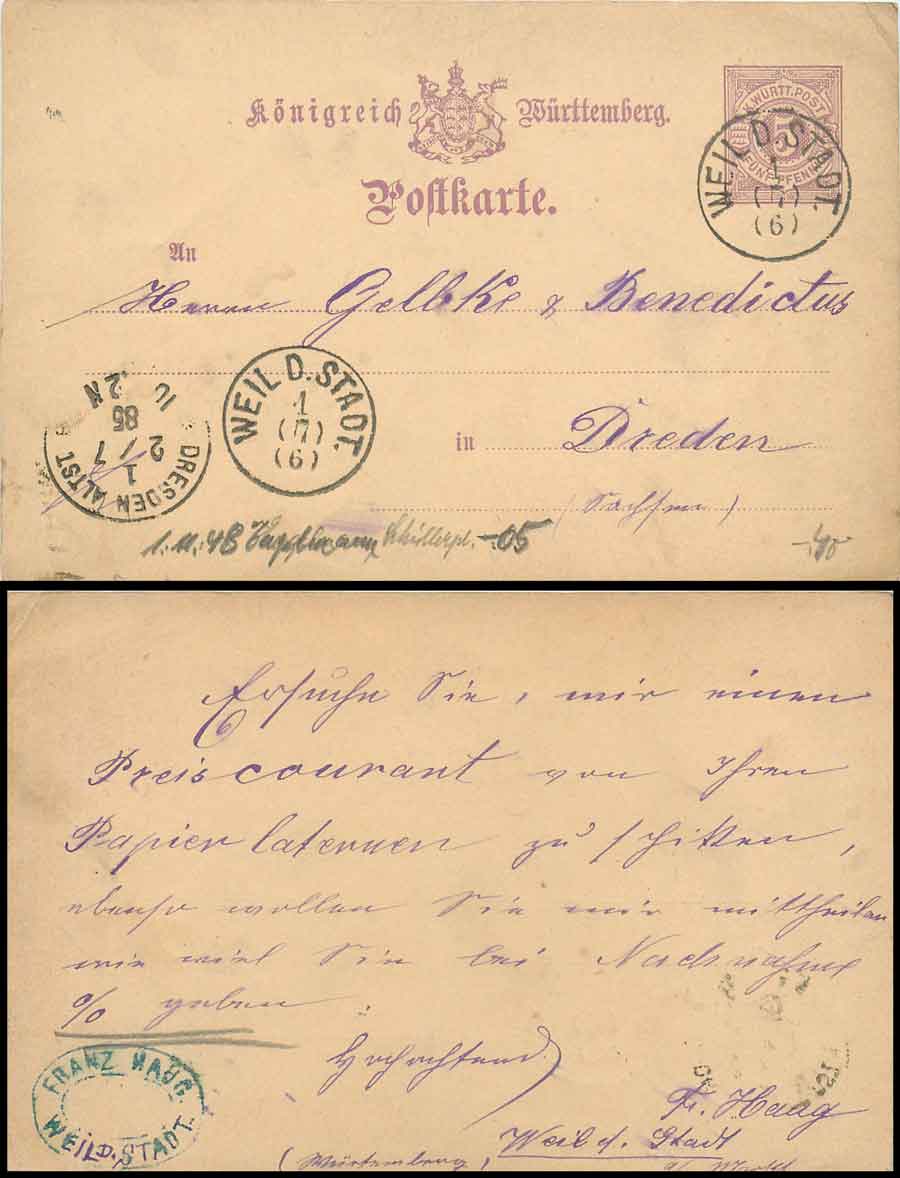 Königreich Württemberg.
K. WÜRTT. POST
5
FÜNF PFENNIG
WEIL D. STADT.
1
(7)
(6)
Postkarte.
An
Herrn Gelbke & Benedictus
WEIL D. STADT.
1
(7)
(6)
DRESDEN ALTST
1
2/7
85
10 - 12 N
in Dreden
(Sachsen)
1.11.48 Schillerpl. -.05
-.40
Ersuche Sie, mir einen
Preiscourant von Ihren
Papierlaternen zu schikken,
ebenso wollen Sie mir mittheilen
wie viel Sie bei Nachnahme
% geben.
Hochachtend
Fr. Haag
Weil d. Stadt
(Würtemberg)
FRANZ HAUG
WEIL D. STADT.